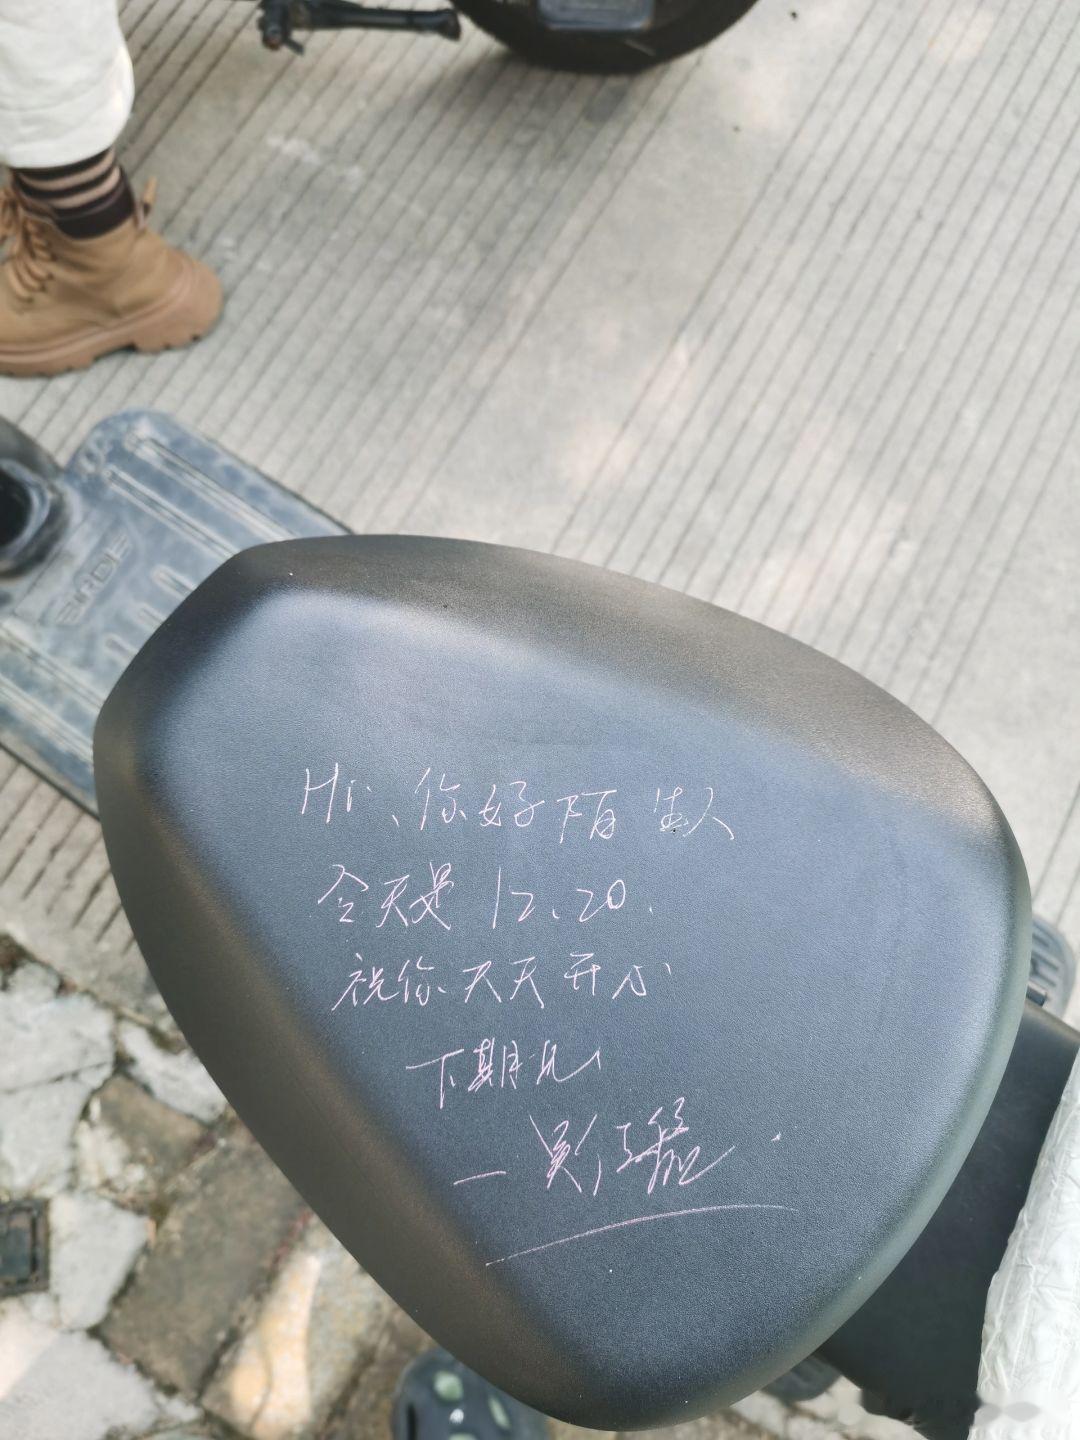 Hi、你好陌生人
今天是 12、20.
祝你天天开心
下期见
BIRDIE